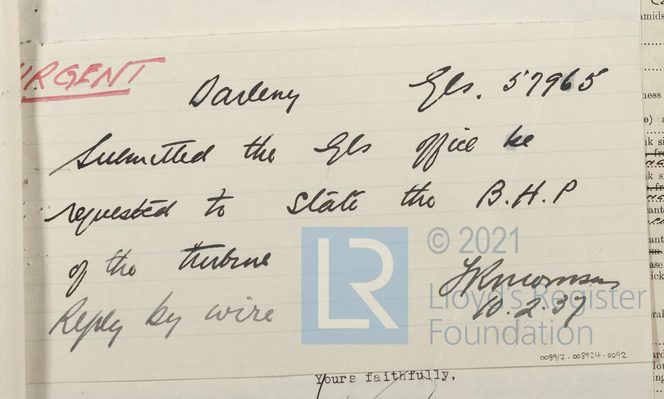 URGENT
Darleny Gls. 57965
Submitted the Gls office be
requested to state the B.H.P
of the turbine
Reply by wire
10.2.37
LR
© 2021
Lloyd's Register
Foundation
008917-008924-0092
Yours faithfully,